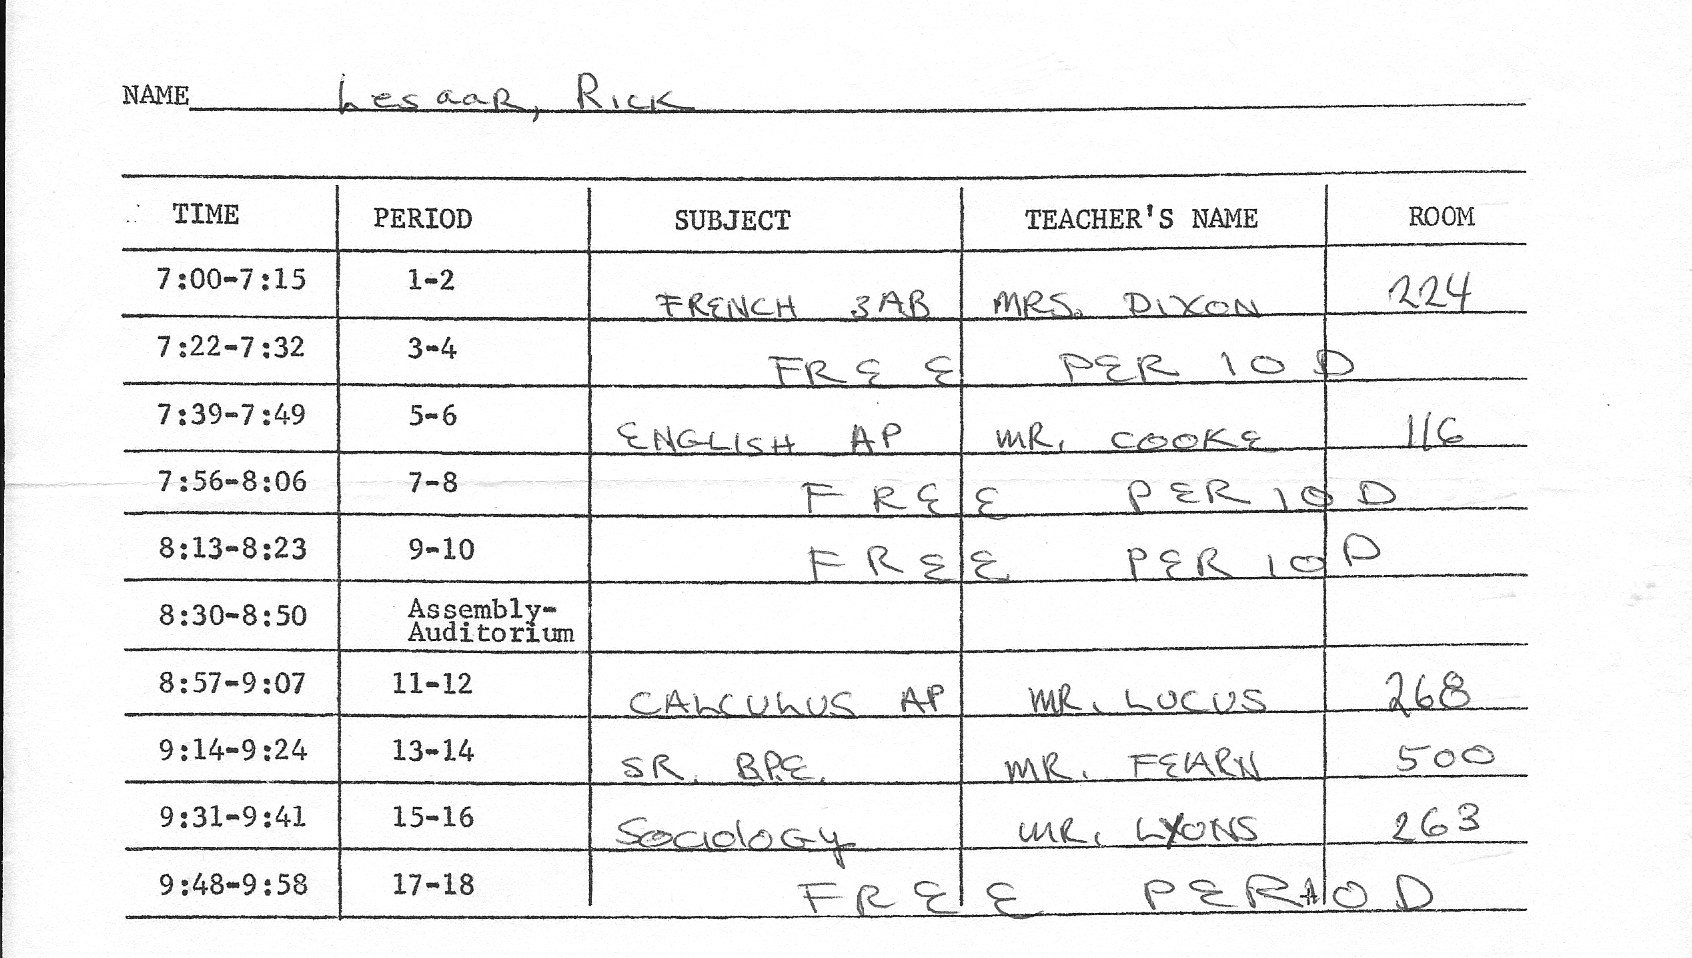 NAME Lesaar, Rick
TIME PERIOD SUBJECT TEACHER'S NAME ROOM
7:00-7:15 1-2 FRENCH 3AB MRS. DIXON 224
7:22-7:32 3-4 FREE PERIOD
7:39-7:49 5-6 ENGLISH AP MR. COOKE 116
7:56-8:06 7-8 FREE PERIOD
8:13-8:23 9-10 FREE PERIOD
8:30-8:50 Assembly-
Auditorium
8:57-9:07 11-12 CALCULUS AP MR. LUCUS 268
9:14-9:24 13-14 SR. B.P.E. MR. FEARN 500
9:31-9:41 15-16 Sociology MR. LYONS 263
9:48-9:58 17-18 FREE PERIOD